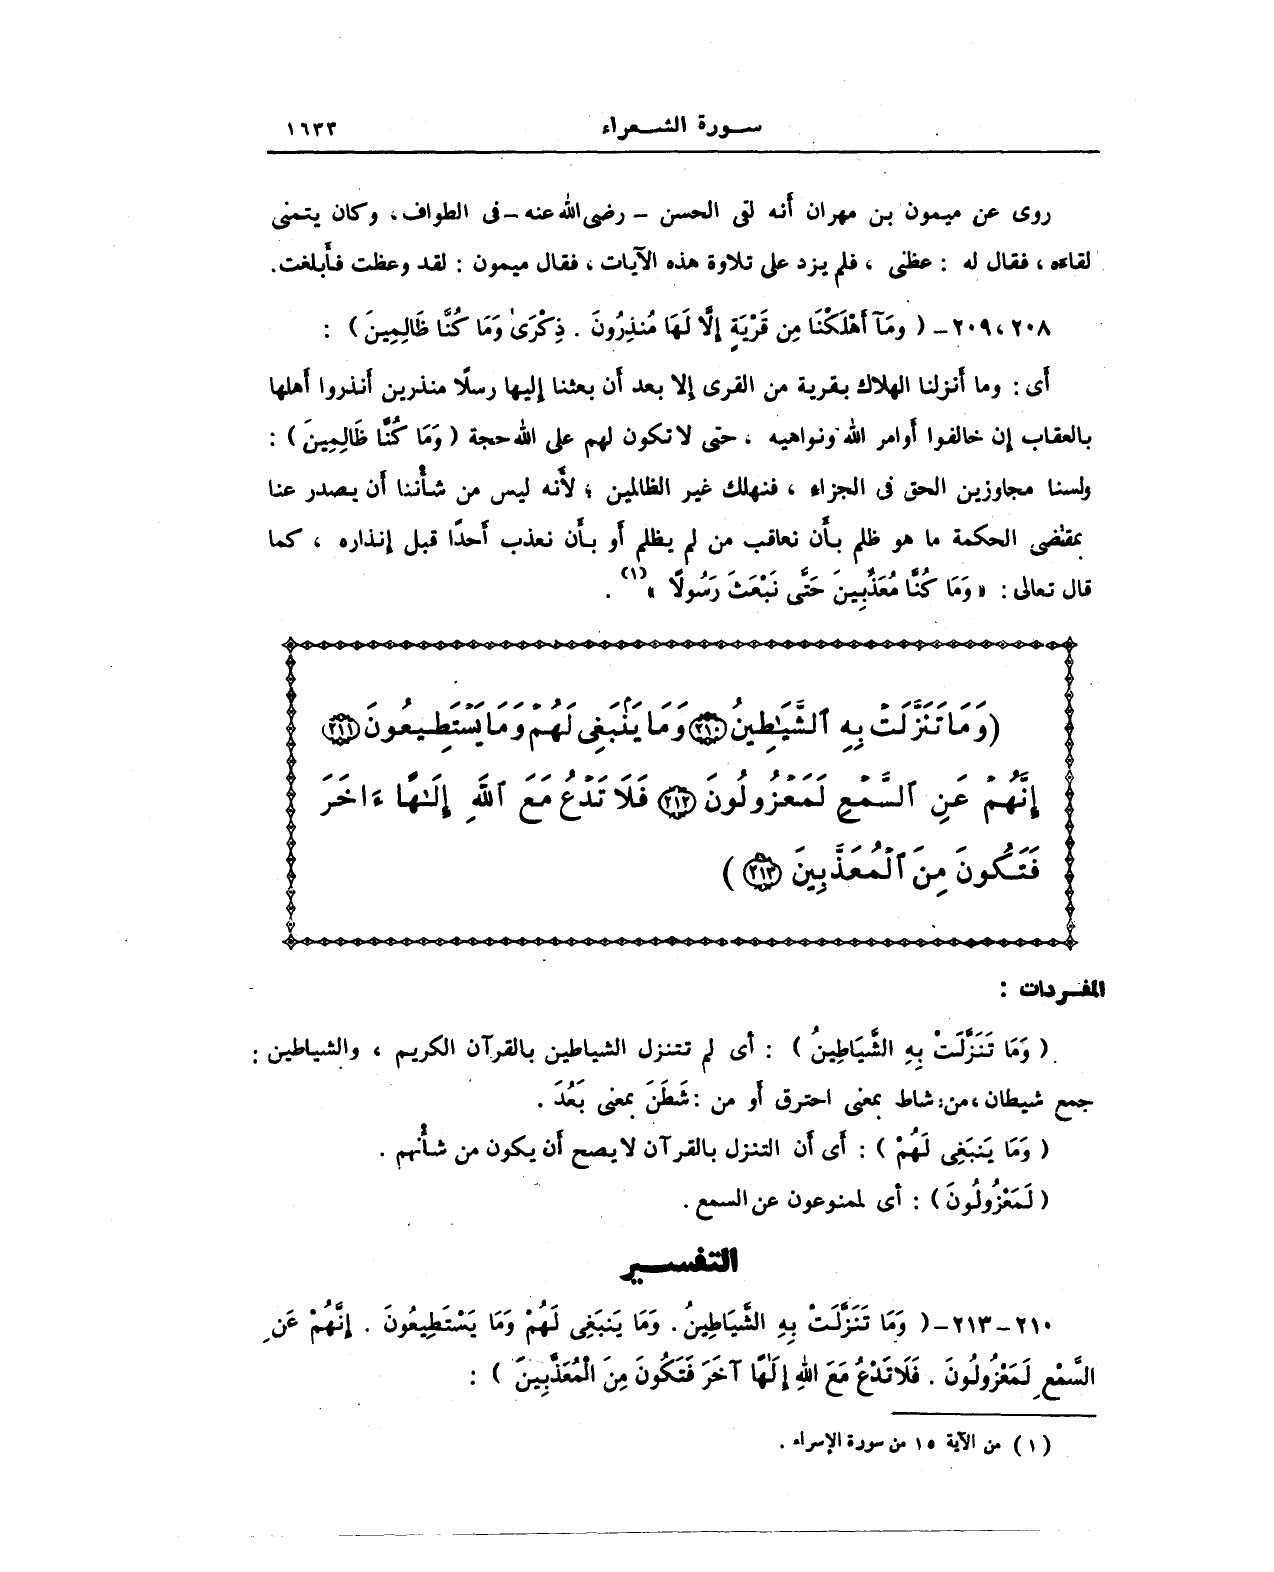 سورة الشعراء ١٦٣٣
روى عن ميمون بن مهران أنه لقى الحسن – رضى الله عنه – فى الطواف، وكان يتمنى
لقاءه، فقال له : عظنى ، فلم يزد على تلاوة هذه الآيات ، فقال ميمون : لقد وعظت فأبلغت.
٢٠٨، ٢٠٩ – ( ومَآ أَهْلَكْنَا مِن قَرْيَةٍ إِلَّا لَهَا مُنذِرُونَ . ذِكْرَىٰ وَمَا كُنَّا ظَالِمِينَ ) :
أى : وما أنزلنا الهلاك بقرية من القرى إلا بعد أن بعثنا إليها رسلًا منذرين أنذروا أهلها
بالعقاب إن خالفوا أوامر الله ونواهيه ، حتى لا تكون لهم على الله حجة ( وَمَا كُنَّا ظَالِمِينَ ) :
ولسنا مجاوزين الحق فى الجزاء ، فنهلك غير الظالمين ؛ لأنه ليس من شأننا أن يصدر عنا
بمقتضى الحكمة ما هو ظلم بأن نعاقب من لم يظلم أو بأن نعذب أحدًا قبل إنذاره ، كما
قال تعالى : « وَمَا كُنَّا مُعَذِّبِينَ حَتَّى نَبْعَثَ رَسُولًا »(١) .
(وَمَا تَنَزَّلَتْ بِهِ ٱلشَّيَٰطِينُ ٢١٠ وَمَا يَنۢبَغِى لَهُمْ وَمَا يَسْتَطِيعُونَ ٢١١
إِنَّهُمْ عَنِ ٱلسَّمْعِ لَمَعْزُولُونَ ٢١٢ فَلَا تَدْعُ مَعَ ٱللَّهِ إِلَٰهًا ءَاخَرَ
فَتَكُونَ مِنَ ٱلْمُعَذَّبِينَ ٢١٣ )
المفردات :
( وَمَا تَنَزَّلَتْ بِهِ الشَّيَاطِينُ ) : أى لم تتنزل الشياطين بالقرآن الكريم ، والشياطين :
جمع شيطان ، من : شاط بمعنى احترق أو من : شَطَنَ بمعنى بَعُدَ .
( وَمَا يَنبَغِى لَهُمْ ) : أى أن التنزل بالقرآن لا يصح أن يكون من شأنهم .
( لَمَعْزُولُونَ ) : أى لممنوعون عن السمع .
التفسير
٢١٠ – ٢١٣ – ( وَمَا تَنَزَّلَتْ بِهِ الشَّيَاطِينُ . وَمَا يَنبَغِى لَهُمْ وَمَا يَسْتَطِيعُونَ . إِنَّهُمْ عَنِ
السَّمْعِ لَمَعْزُولُونَ . فَلَا تَدْعُ مَعَ اللهِ إِلَٰهًا آخَرَ فَتَكُونَ مِنَ الْمُعَذَّبِينَ ) :
(١) من الآية ١٥ من سورة الإسراء .